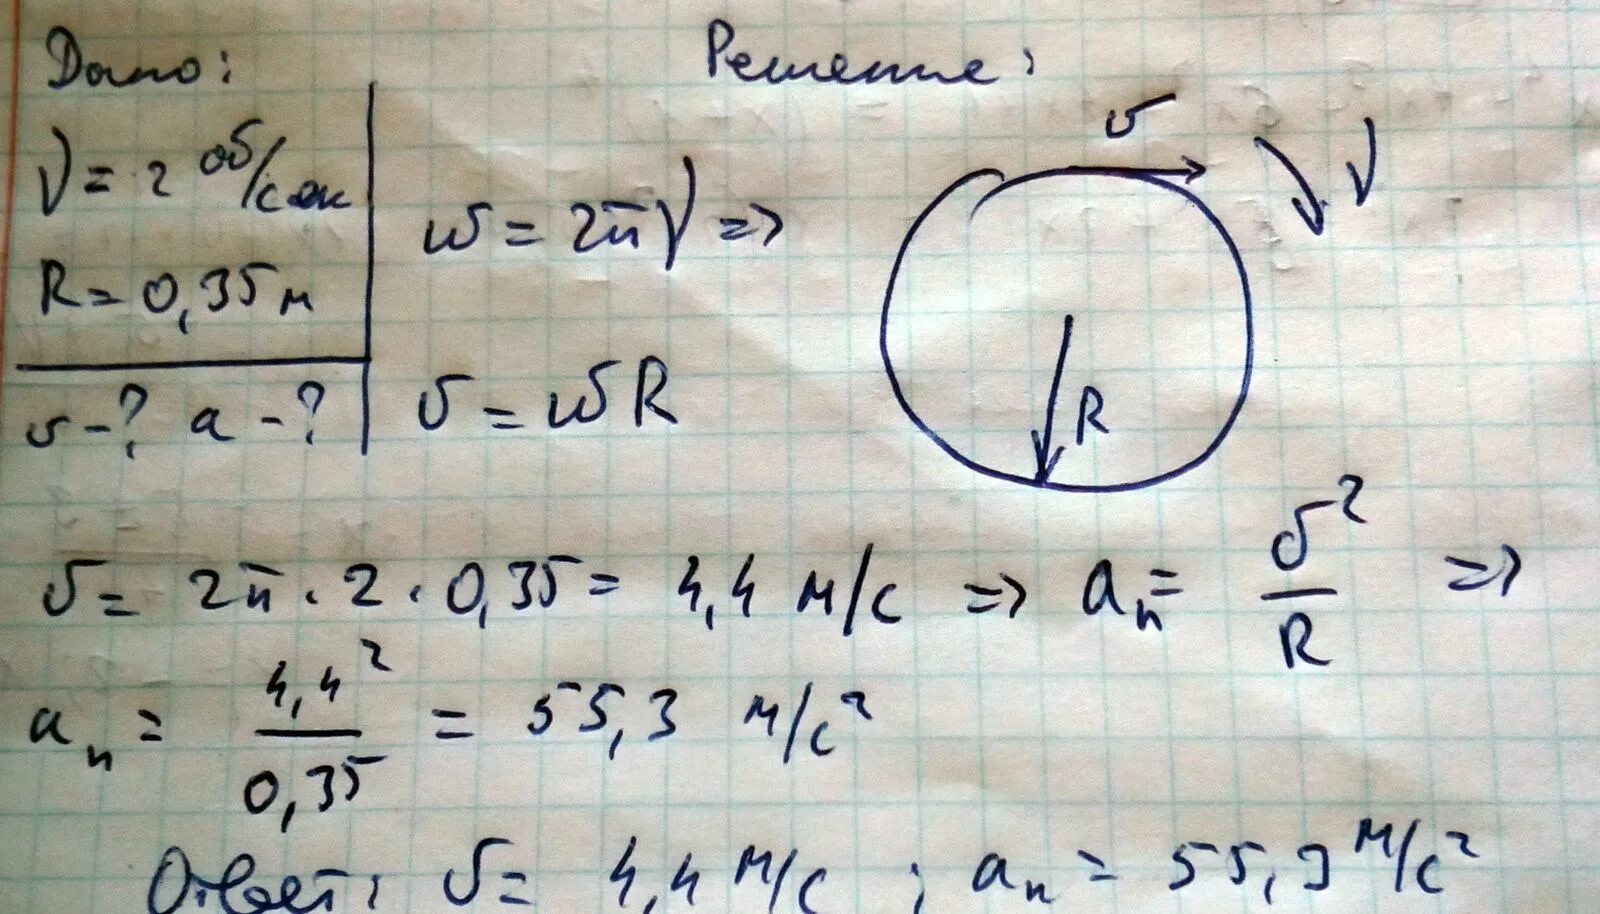 Дано:
Решение:
ν = 2 об/сек
R = 0,35 м
v - ? a - ?
ω = 2πν =>
v = ωR
v
ν
R
v = 2π · 2 · 0,35 = 4,4 м/с => aₙ = v²/R =>
aₙ = 4,4²/0,35 = 55,3 м/с²
Ответ: v = 4,4 м/с ; aₙ = 55,3 м/с²